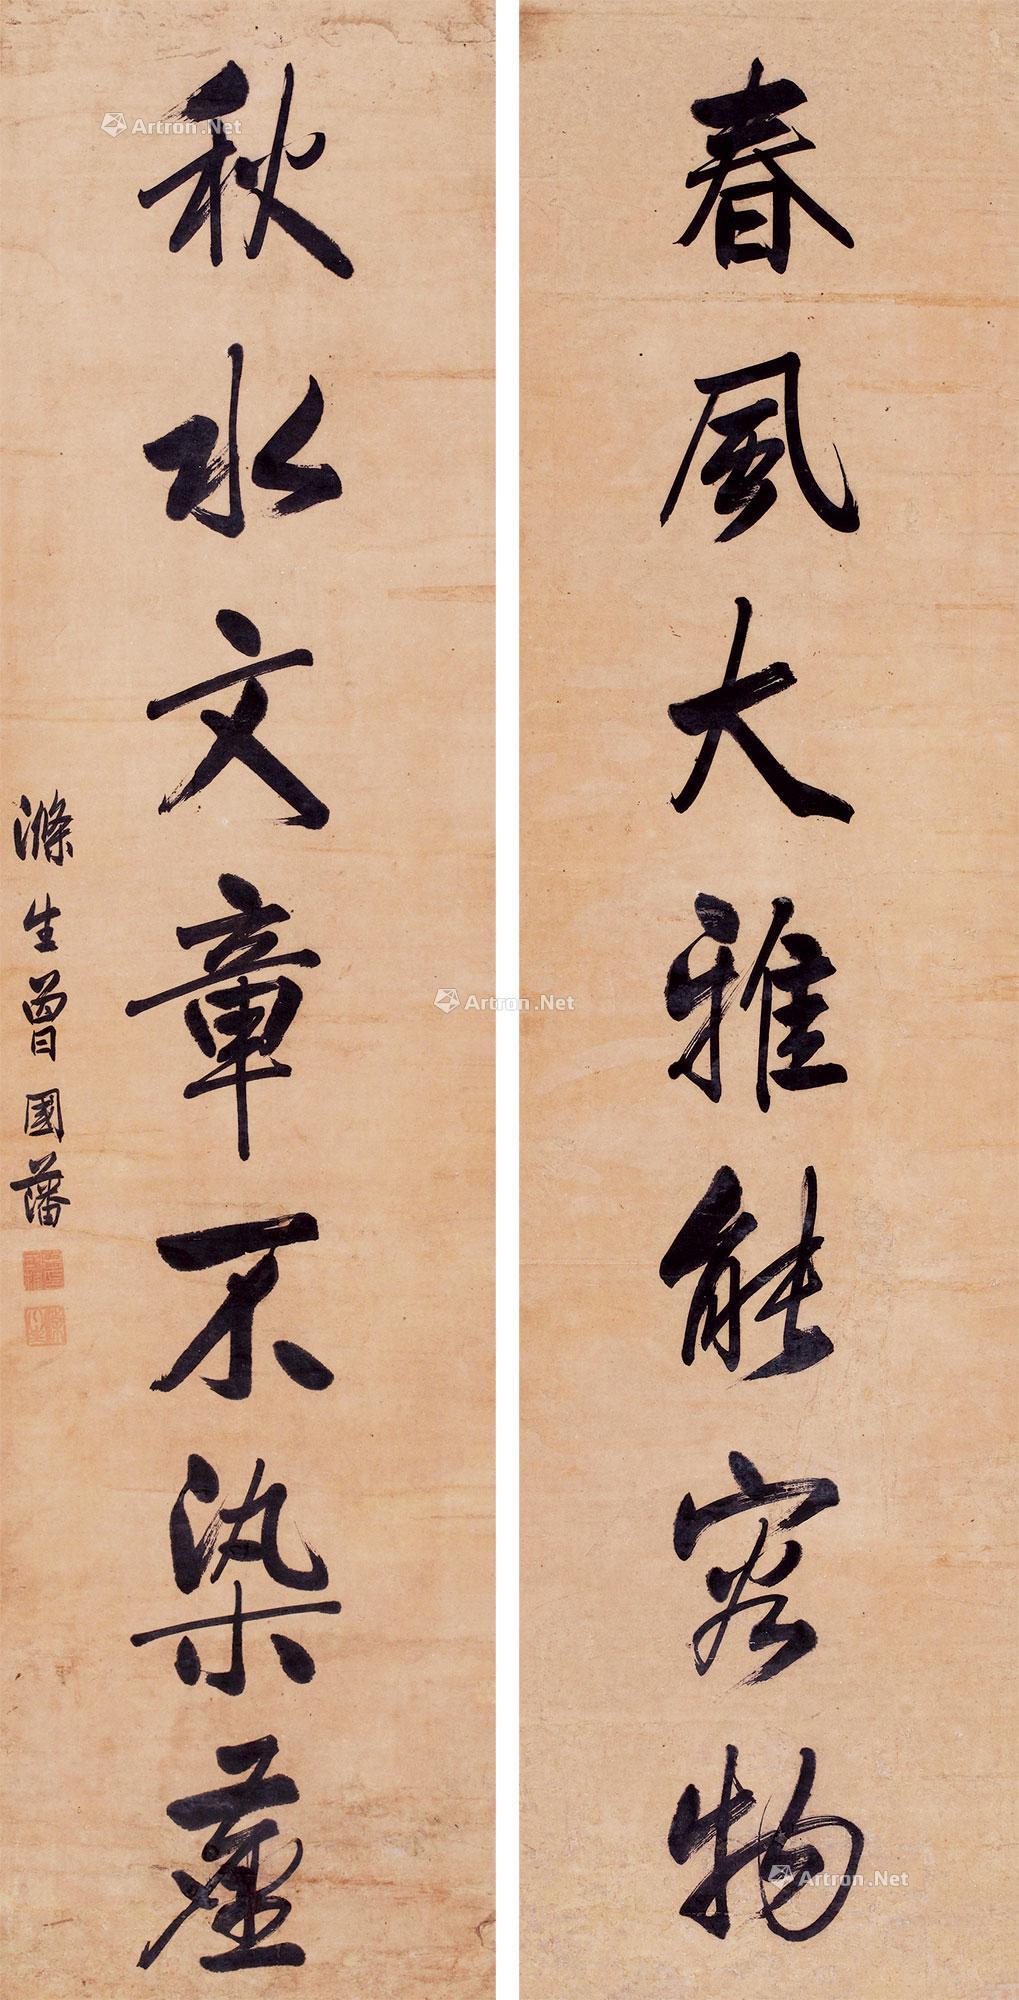 春風大雅能容物
秋水文章不染塵
滌生曾國藩
Artron.Net
Artron.Net
Artron.Net